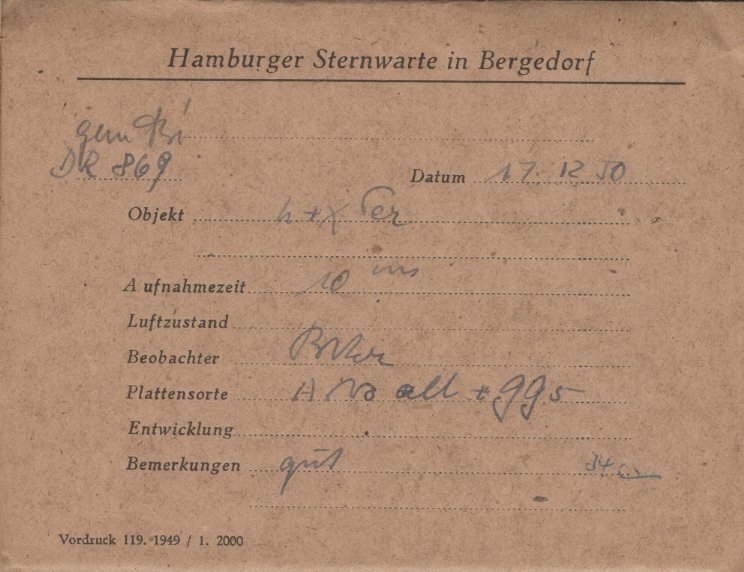 Hamburger Sternwarte in Bergedorf
gem
DR 869
Datum 17. 12 50
Objekt h + χ Per
Aufnahmezeit 10 m
Luftzustand
Beobachter
Plattensorte
Entwicklung
Bemerkungen gut
Vordruck 119. 1949 / 1. 2000